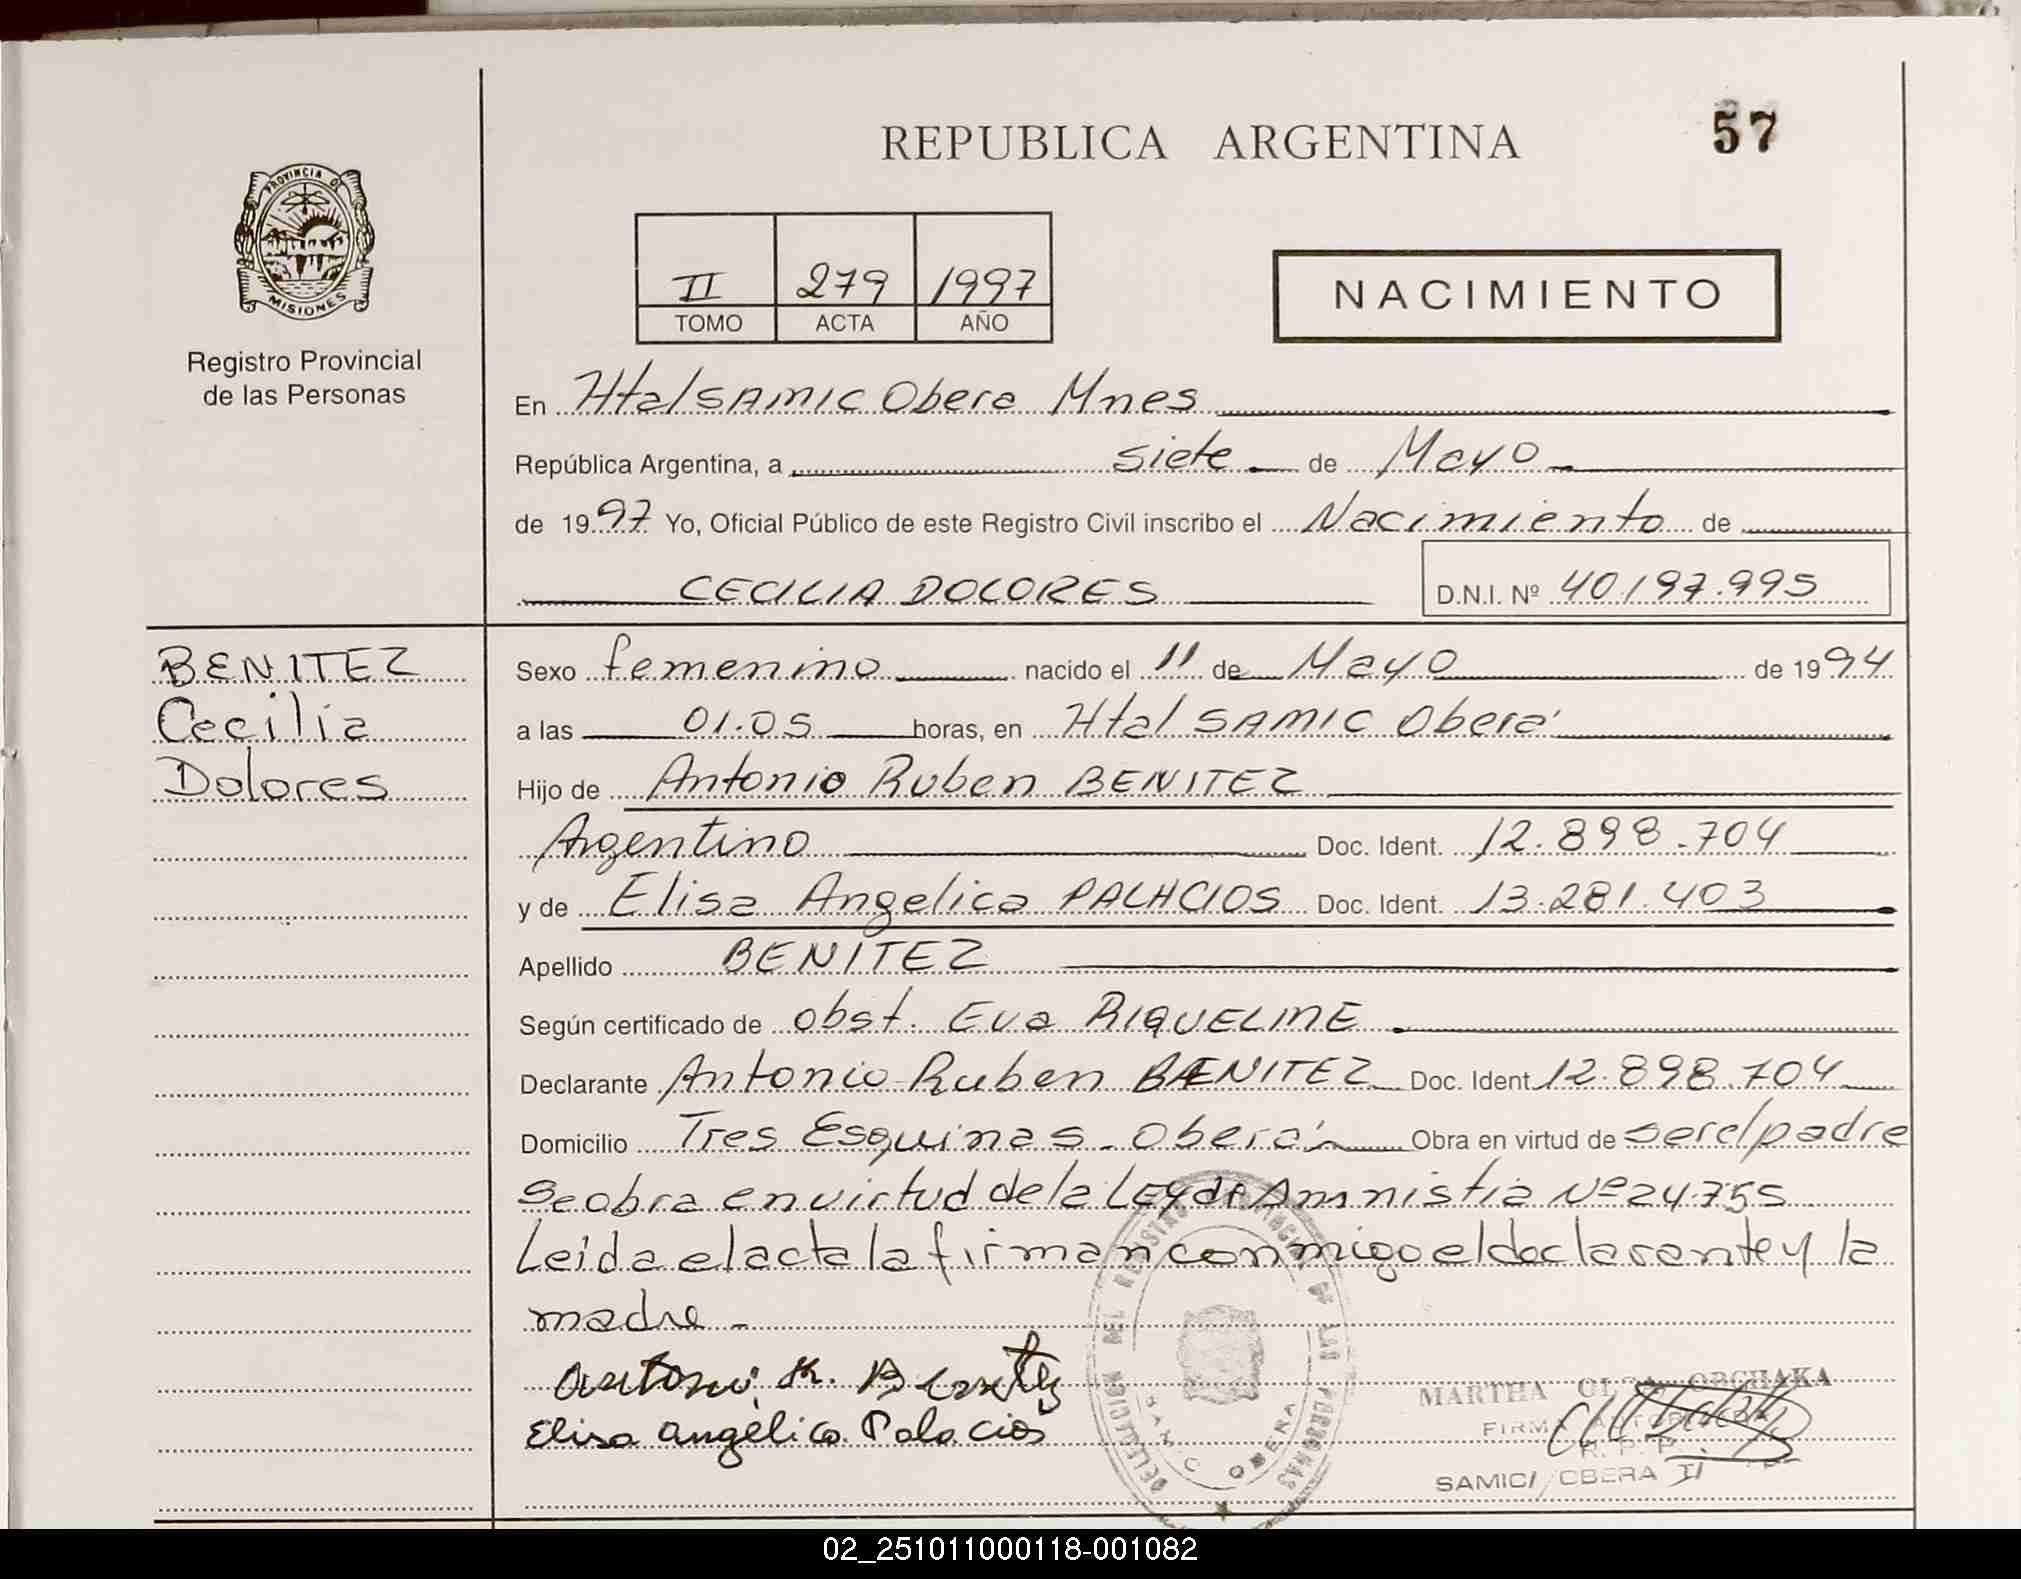 REPUBLICA ARGENTINA
57
PROVINCIA DE
MISIONES
Registro Provincial
de las Personas
II 279 1997
TOMO ACTA AÑO
NACIMIENTO
En Htal SAMIC Obera Mnes
República Argentina, a siete de Mayo
de 1997 Yo, Oficial Público de este Registro Civil inscribo el Nacimiento de
CECILIA DOLORES D.N.I. Nº 40.197.995
BENITEZ
Cecilia
Dolores
Sexo femenino nacido el 11 de Mayo de 1994
a las 01.05 horas, en Htal SAMIC Oberá
Hijo de Antonio Ruben BENITEZ
Argentino Doc. Ident. 12.898.704
y de Elisa Angelica PALACIOS Doc. Ident. 13.281.403
Apellido BENITEZ
Según certificado de obst. Eva RIQUELME
Declarante Antonio Ruben BENITEZ Doc. Ident. 12.898.704
Domicilio Tres Esquinas - Oberá Obra en virtud de ser el padre
Se obra en virtud de la Ley de Amnistia Nº 24.755
Leida el acta la firman conmigo el declarante y la
madre -
Antonio R. Benitez
Elisa Angélica Palacios
DELEGACION DEL REGISTRO PROVINCIAL DE LAS PERSONAS
SAMIC OBERA
MARTHA OLGA
FIRMA AUTORIZADA
R. P. P.
SAMIC / OBERA II
02_251011000118-001082